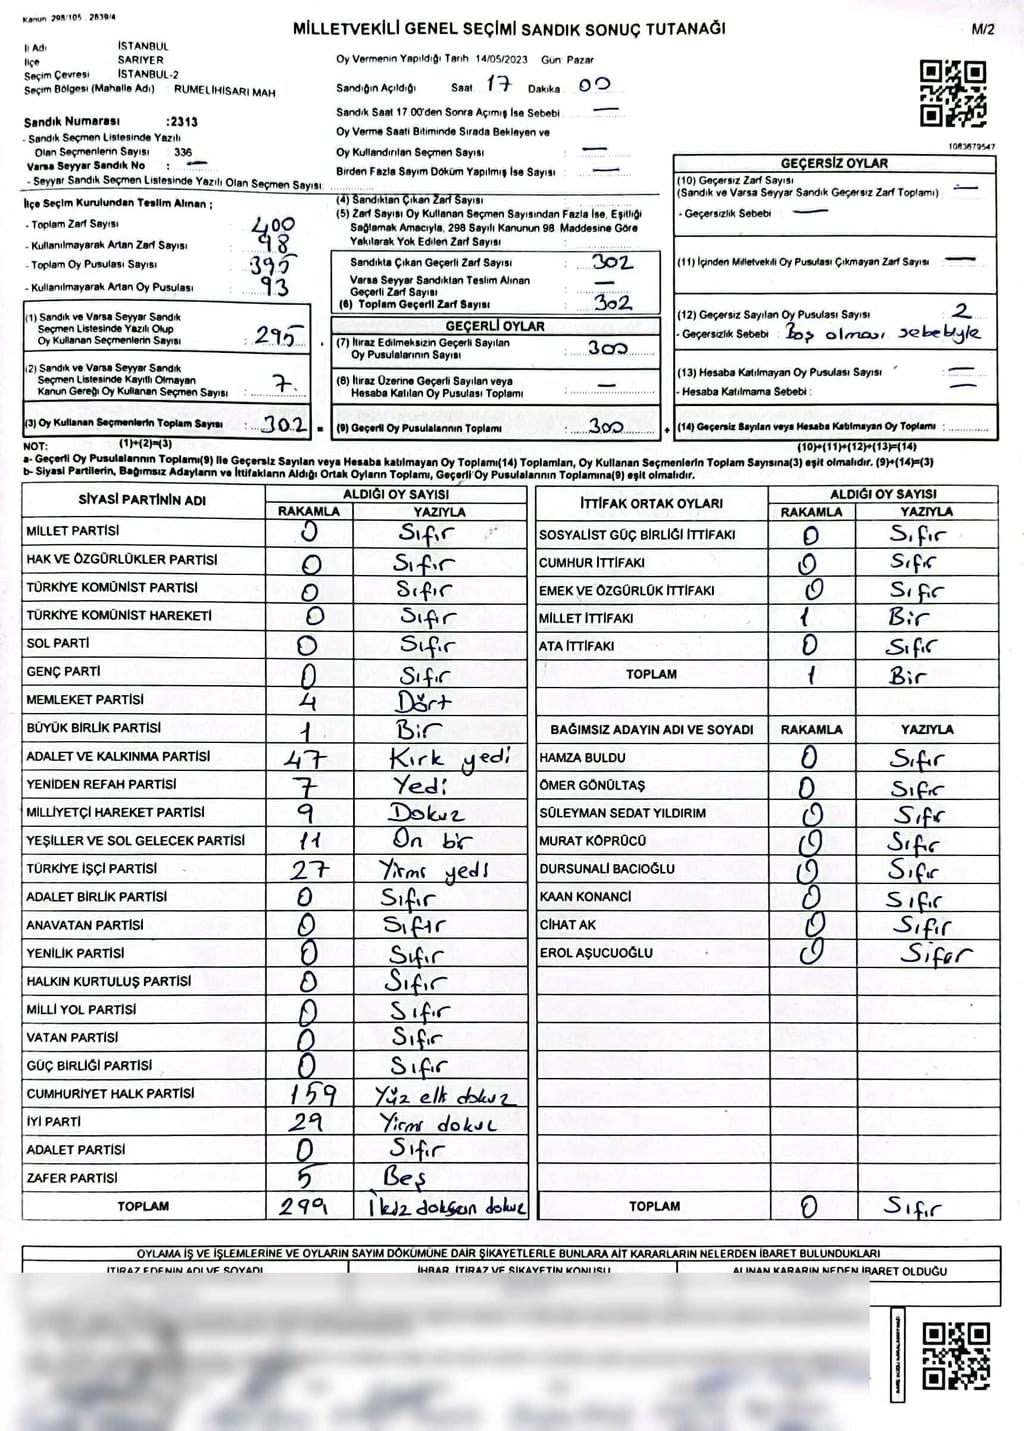 Kanun 298/105 . 2839/4
MİLLETVEKİLİ GENEL SEÇİMİ SANDIK SONUÇ TUTANAĞI
M/2
İl Adı : İSTANBUL
İlçe : SARIYER
Seçim Çevresi : İSTANBUL-2
Seçim Bölgesi (Mahalle Adı) : RUMELİHİSARI MAH
Sandık Numarası :2313
- Sandık Seçmen Listesinde Yazılı
Olan Seçmenlerin Sayısı : 336
Varsa Seyyar Sandık No : —
- Seyyar Sandık Seçmen Listesinde Yazılı Olan Seçmen Sayısı:
Oy Vermenin Yapıldığı Tarih 14/05/2023 Gün Pazar
Sandığın Açıldığı Saat 17 Dakika 00
Sandık Saat 17 00'den Sonra Açımış İse Sebebi —
Oy Verme Saati Bitiminde Sırada Bekleyen ve
Oy Kullandırılan Seçmen Sayısı : —
Birden Fazla Sayım Döküm Yapılmış İse Sayısı : —
1083679547
İlçe Seçim Kurulundan Teslim Alınan ;
- Toplam Zarf Sayısı : 400
- Kullanılmayarak Artan Zarf Sayısı : 98
- Toplam Oy Pusulası Sayısı : 395
- Kullanılmayarak Artan Oy Pusulası : 93
(1) Sandık ve Varsa Seyyar Sandık
Seçmen Listesinde Yazılı Olup
Oy Kullanan Seçmenlerin Sayısı : 295
(2) Sandık ve Varsa Seyyar Sandık
Seçmen Listesinde Kayıtlı Olmayan
Kanun Gereği Oy Kullanan Seçmen Sayısı : 7
(3) Oy Kullanan Seçmenlerin Toplam Sayısı : 302
(4) Sandıktan Çıkan Zarf Sayısı
(5) Zarf Sayısı Oy Kullanan Seçmen Sayısından Fazla İse, Eşitliği
Sağlamak Amacıyla, 298 Sayılı Kanunun 98 Maddesine Göre
Yakılarak Yok Edilen Zarf Sayısı :
Sandıkta Çıkan Geçerli Zarf Sayısı : 302
Varsa Seyyar Sandıktan Teslim Alınan
Geçerli Zarf Sayısı : —
(6) Toplam Geçerli Zarf Sayısı : 302
GEÇERLİ OYLAR
(7) İtiraz Edilmeksizin Geçerli Sayılan
Oy Pusulalarının Sayısı : 300
(8) İtiraz Üzerine Geçerli Sayılan veya
Hesaba Katılan Oy Pusulası Toplamı : —
= (9) Geçerli Oy Pusulalarının Toplamı : 300
GEÇERSİZ OYLAR
(10) Geçersiz Zarf Sayısı
(Sandık ve Varsa Seyyar Sandık Geçersiz Zarf Toplamı) : —
- Geçersizlik Sebebi : —
(11) İçinden Milletvekili Oy Pusulası Çıkmayan Zarf Sayısı : —
(12) Geçersiz Sayılan Oy Pusulası Sayısı : 2
- Geçersizlik Sebebi : Boş olması sebebiyle
(13) Hesaba Katılmayan Oy Pusulası Sayısı : —
- Hesaba Katılmama Sebebi : —
+ (14) Geçersiz Sayılan veya Hesaba Katılmayan Oy Toplamı :
NOT: (1)+(2)=(3) (10)+(11)+(12)+(13)=(14)
a- Geçerli Oy Pusulalarının Toplamı(9) İle Geçersiz Sayılan veya Hesaba katılmayan Oy Toplamı(14) Toplamları, Oy Kullanan Seçmenlerin Toplam Sayısına(3) eşit olmalıdır. (9)+(14)=(3)
b- Siyasi Partilerin, Bağımsız Adayların ve İttifakların Aldığı Ortak Oyların Toplamı, Geçerli Oy Pusulalarının Toplamına(9) eşit olmalıdır.
SİYASİ PARTİNİN ADI ALDIĞI OY SAYISI
RAKAMLA YAZIYLA
MİLLET PARTİSİ 0 Sıfır
HAK VE ÖZGÜRLÜKLER PARTİSİ 0 Sıfır
TÜRKİYE KOMÜNİST PARTİSİ 0 Sıfır
TÜRKİYE KOMÜNİST HAREKETİ 0 Sıfır
SOL PARTİ 0 Sıfır
GENÇ PARTİ 0 Sıfır
MEMLEKET PARTİSİ 4 Dört
BÜYÜK BİRLİK PARTİSİ 1 Bir
ADALET VE KALKINMA PARTİSİ 47 Kırk yedi
YENİDEN REFAH PARTİSİ 7 Yedi
MİLLİYETÇİ HAREKET PARTİSİ 9 Dokuz
YEŞİLLER VE SOL GELECEK PARTİSİ 11 On bir
TÜRKİYE İŞÇİ PARTİSİ 27 Yirmi yedi
ADALET BİRLİK PARTİSİ 0 Sıfır
ANAVATAN PARTİSİ 0 Sıfır
YENİLİK PARTİSİ 0 Sıfır
HALKIN KURTULUŞ PARTİSİ 0 Sıfır
MİLLİ YOL PARTİSİ 0 Sıfır
VATAN PARTİSİ 0 Sıfır
GÜÇ BİRLİĞİ PARTİSİ 0 Sıfır
CUMHURİYET HALK PARTİSİ 159 Yüz elli dokuz
İYİ PARTİ 29 Yirmi dokuz
ADALET PARTİSİ 0 Sıfır
ZAFER PARTİSİ 5 Beş
TOPLAM 299 İkiz doksan dokuz
İTTİFAK ORTAK OYLARI ALDIĞI OY SAYISI
RAKAMLA YAZIYLA
SOSYALİST GÜÇ BİRLİĞİ İTTİFAKI 0 Sıfır
CUMHUR İTTİFAKI 0 Sıfır
EMEK VE ÖZGÜRLÜK İTTİFAKI 0 Sıfır
MİLLET İTTİFAKI 1 Bir
ATA İTTİFAKI 0 Sıfır
TOPLAM 1 Bir
BAĞIMSIZ ADAYIN ADI VE SOYADI RAKAMLA YAZIYLA
HAMZA BULDU 0 Sıfır
ÖMER GÖNÜLTAŞ 0 Sıfır
SÜLEYMAN SEDAT YILDIRIM 0 Sıfır
MURAT KÖPRÜCÜ 0 Sıfır
DURSUNALİ BACIOĞLU 0 Sıfır
KAAN KONANCİ 0 Sıfır
CİHAT AK 0 Sıfır
EROL AŞUCUOĞLU 0 Sıfır
TOPLAM 0 Sıfır
OYLAMA İŞ VE İŞLEMLERİNE VE OYLARIN SAYIM DÖKÜMÜNE DAİR ŞİKAYETLERLE BUNLARA AİT KARARLARIN NELERDEN İBARET BULUNDUKLARI
İTİRAZ EDENİN ADI VE SOYADI İHBAR, İTİRAZ VE ŞİKAYETİN KONUSU ALINAN KARARIN NEDEN İBARET OLDUĞU